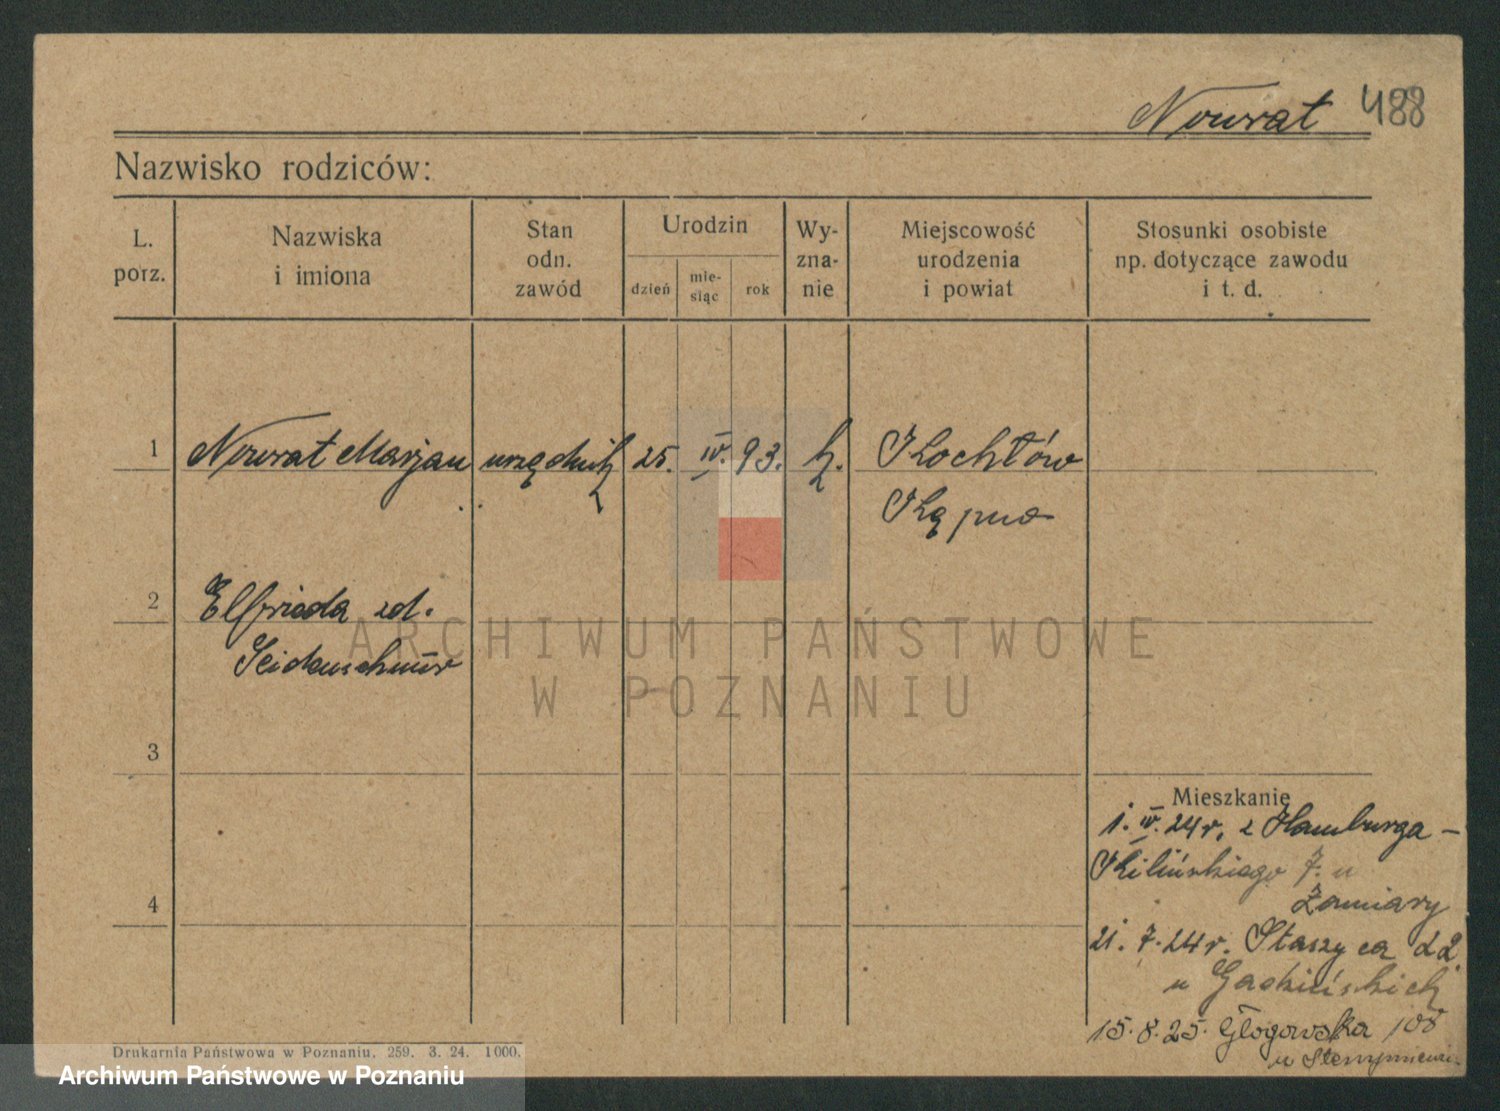 Nowrat 488
Nazwisko rodziców:
L. porz.
Nazwiska i imiona
Stan odn. zawód
Urodzin
dzień
mie- siąc
rok
Wy- zna- nie
Miejscowość urodzenia i powiat
Stosunki osobiste np. dotyczące zawodu i t. d.
1 Nowrat Marjan urzędnik 25. IV. 93. k. Kochłów
Kępno
2 Elfrieda zd.
Seidenschnur
3
4
Mieszkanie
1. IV. 24 r. z Hamburga –
Kilińskiego 7. u
21. 7. 24 r. Staszyca 22.
u
15. 8. 25. Głogowska 108
u
ARCHIWUM PAŃSTWOWE
W POZNANIU
Drukarnia Państwowa w Poznaniu, 259. 3. 24. 1000.
Archiwum Państwowe w Poznaniu